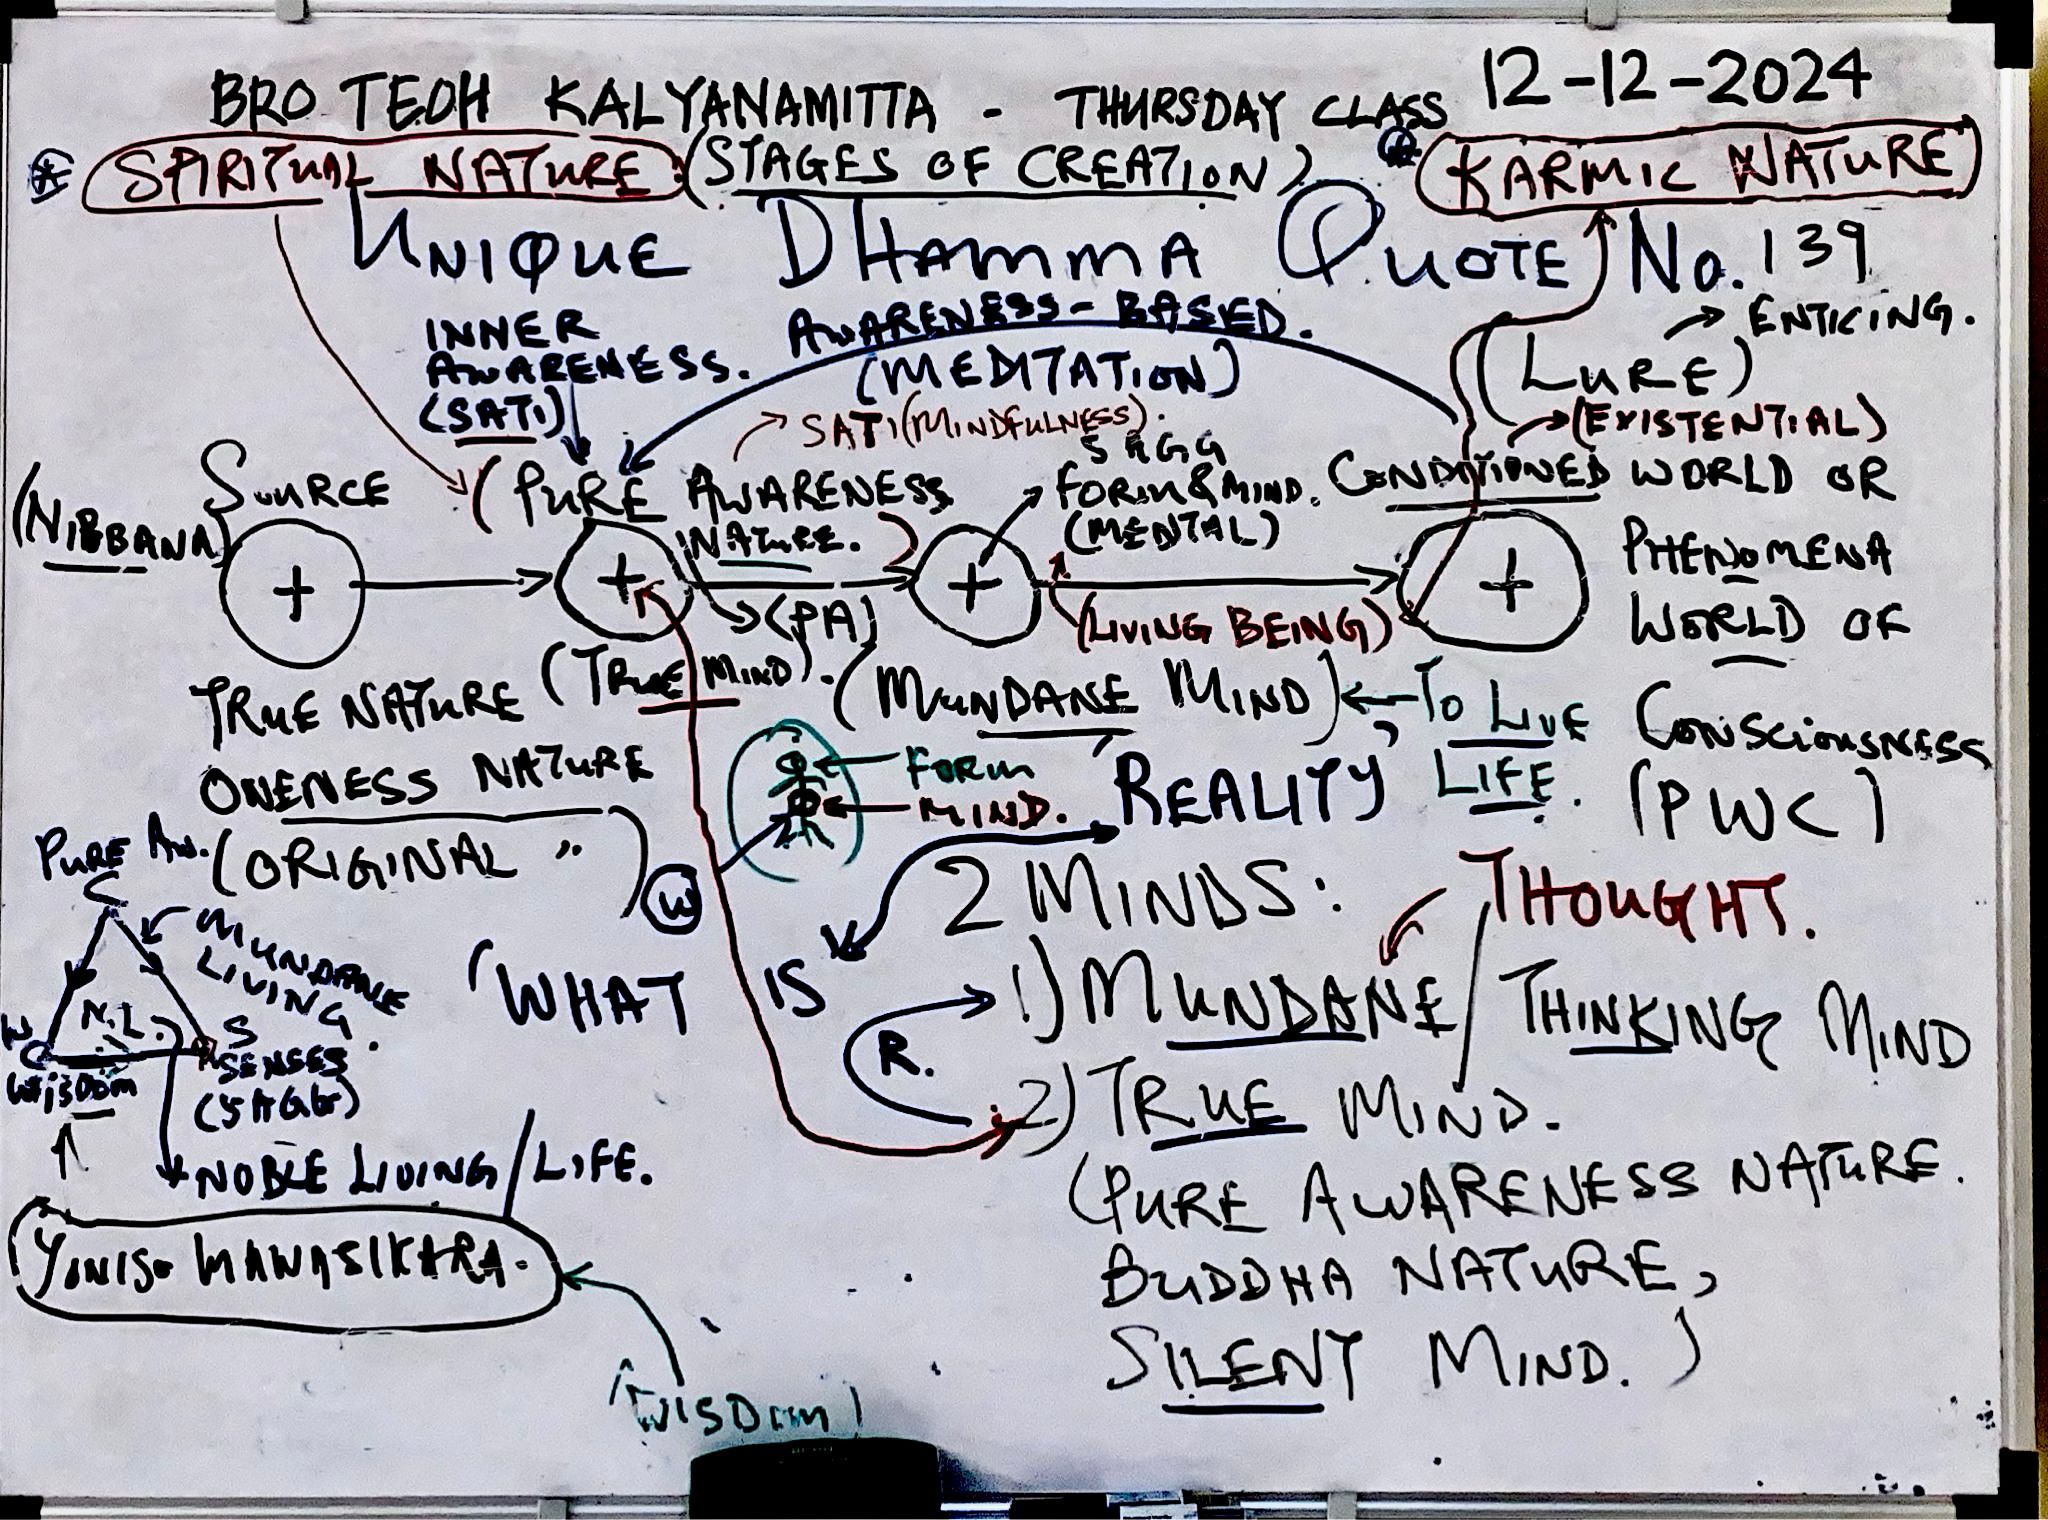 BRO TEOH KALYANAMITTA - THURSDAY CLASS 12-12-2024
SPIRITUAL NATURE : (STAGES OF CREATION) KARMIC NATURE
UNIQUE DHAMMA QUOTE No. 139
INNER AWARENESS. (SATI)
AWARENESS-BASED. (MEDITATION)
(LURE) → ENTICING.
→ (EXISTENTIAL)
→ SATI (MINDFULNESS).
(NIBBANA) SOURCE
(PURE AWARENESS NATURE.)
5 AGG
FORM & MIND.
(MENTAL)
CONDITIONED WORLD OR
PHENOMENA
WORLD OF
CONSCIOUSNESS
(PWC)
→ (PA)
(LIVING BEING)
TRUE NATURE
(TRUE MIND).
(MUNDANE MIND) ← TO LIVE LIFE.
ONENESS NATURE
(ORIGINAL ")
← FORM
← MIND.
'REALITY'
W
PURE AW.
MUNDANE LIVING.
N.L.
W
WISDOM
S
SENSES
(5 AGG)
→ NOBLE LIVING / LIFE.
YONISO MANASIKARA.
(WISDOM)
'WHAT IS
2 MINDS:
THOUGHT.
R.
1) MUNDANE / THINKING MIND
2) TRUE MIND.
(PURE AWARENESS NATURE.
BUDDHA NATURE,
SILENT MIND.)